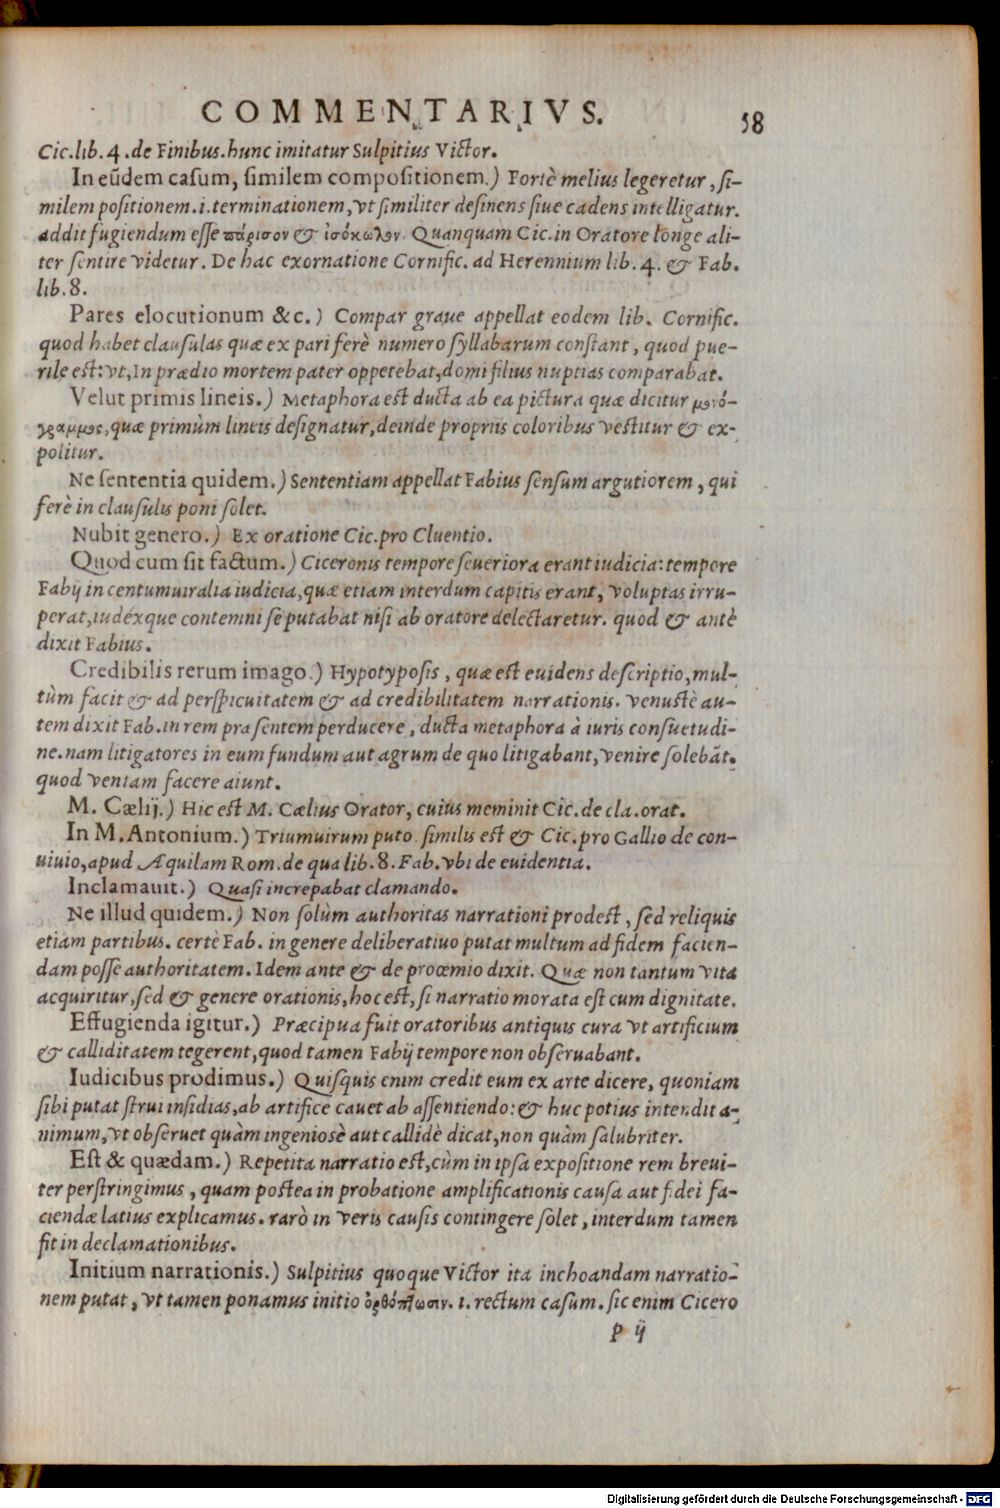 COMMENTARIVS. 58
Cic.lib.4.de Finibus.hunc imitatur Sulpitius Victor.
In eũdem casum, similem compositionem.) Fortè melius legeretur, si-
milem positionem.i.terminationem, vt similiter desinens siue cadens intelligatur.
addit fugiendum esse πάρισον & ἰσόκωλον. Quanquam Cic.in Oratore longe ali-
ter sentire videtur. De hac exornatione Cornific. ad Herennium lib. 4. & Fab.
lib.8.
Pares elocutionum &c.) Compar graue appellat eodem lib. Cornific.
quod habet clausulas quæ ex pari ferè numero syllabarum constant, quod pue-
rile est: vt, In prædio mortem pater oppetebat, domi filius nuptias comparabat.
Velut primis lineis.) Metaphora est ducta ab ea pictura quæ dicitur μονό-
γραμμος, quæ primùm lineis designatur, deinde propriis coloribus vestitur & ex-
politur.
Ne sententia quidem.) Sententiam appellat Fabius sensum argutiorem, qui
ferè in clausulis poni solet.
Nubit genero.) Ex oratione Cic.pro Cluentio.
Quod cum sit factum.) Ciceronis tempore seueriora erant iudicia: tempore
Fabij in centumuiralia iudicia, quæ etiam interdum capitis erant, voluptas irru-
perat, iudéxque contemni se putabat nisi ab oratore delectaretur. quod & antè
dixit Fabius.
Credibilis rerum imago.) Hypotyposis, quæ est euidens descriptio, mul-
tùm facit & ad perspicuitatem & ad credibilitatem narrationis. venustè au-
tem dixit Fab.in rem præsentem perducere, ducta metaphora à iuris consuetudi-
ne.nam litigatores in eum fundum aut agrum de quo litigabant, venire solebãt.
quod veniam facere aiunt.
M. Cælij.) Hic est M. Cælius Orator, cuius meminit Cic.de cla.orat.
In M.Antonium.) Triumuirum puto. similis est & Cic.pro Gallio de con-
uiuio, apud Æquilam Rom.de qua lib.8.Fab.vbi de euidentia.
Inclamauit.) Quasi increpabat clamando.
Ne illud quidem.) Non solùm authoritas narrationi prodest, sed reliquis
etiam partibus. certè Fab. in genere deliberatiuo putat multum ad fidem facien-
dam posse authoritatem. Idem ante & de proœmio dixit. Quæ non tantum vita
acquiritur, sed & genere orationis, hoc est, si narratio morata est cum dignitate.
Effugienda igitur.) Præcipua fuit oratoribus antiquis cura vt artificium
& calliditatem tegerent, quod tamen Fabij tempore non obseruabant.
Iudicibus prodimus.) Quisquis enim credit eum ex arte dicere, quoniam
sibi putat strui insidias, ab artifice cauet ab assentiendo: & huc potius intendit a-
nimum, vt obseruet quàm ingeniosè aut callidè dicat, non quàm salubriter.
Est & quædam.) Repetita narratio est, cùm in ipsa expositione rem breui-
ter perstringimus, quam postea in probatione amplificationis causa aut fidei fa-
ciendæ latius explicamus. rarò in veris causis contingere solet, interdum tamen
fit in declamationibus.
Initium narrationis.) Sulpitius quoque Victor ita inchoandam narratio-
nem putat, vt tamen ponamus initio ὀρθόπτωσιν. i. rectum casum. sic enim Cicero
p ij
Digitalisierung gefördert durch die Deutsche Forschungsgemeinschaft - DFG